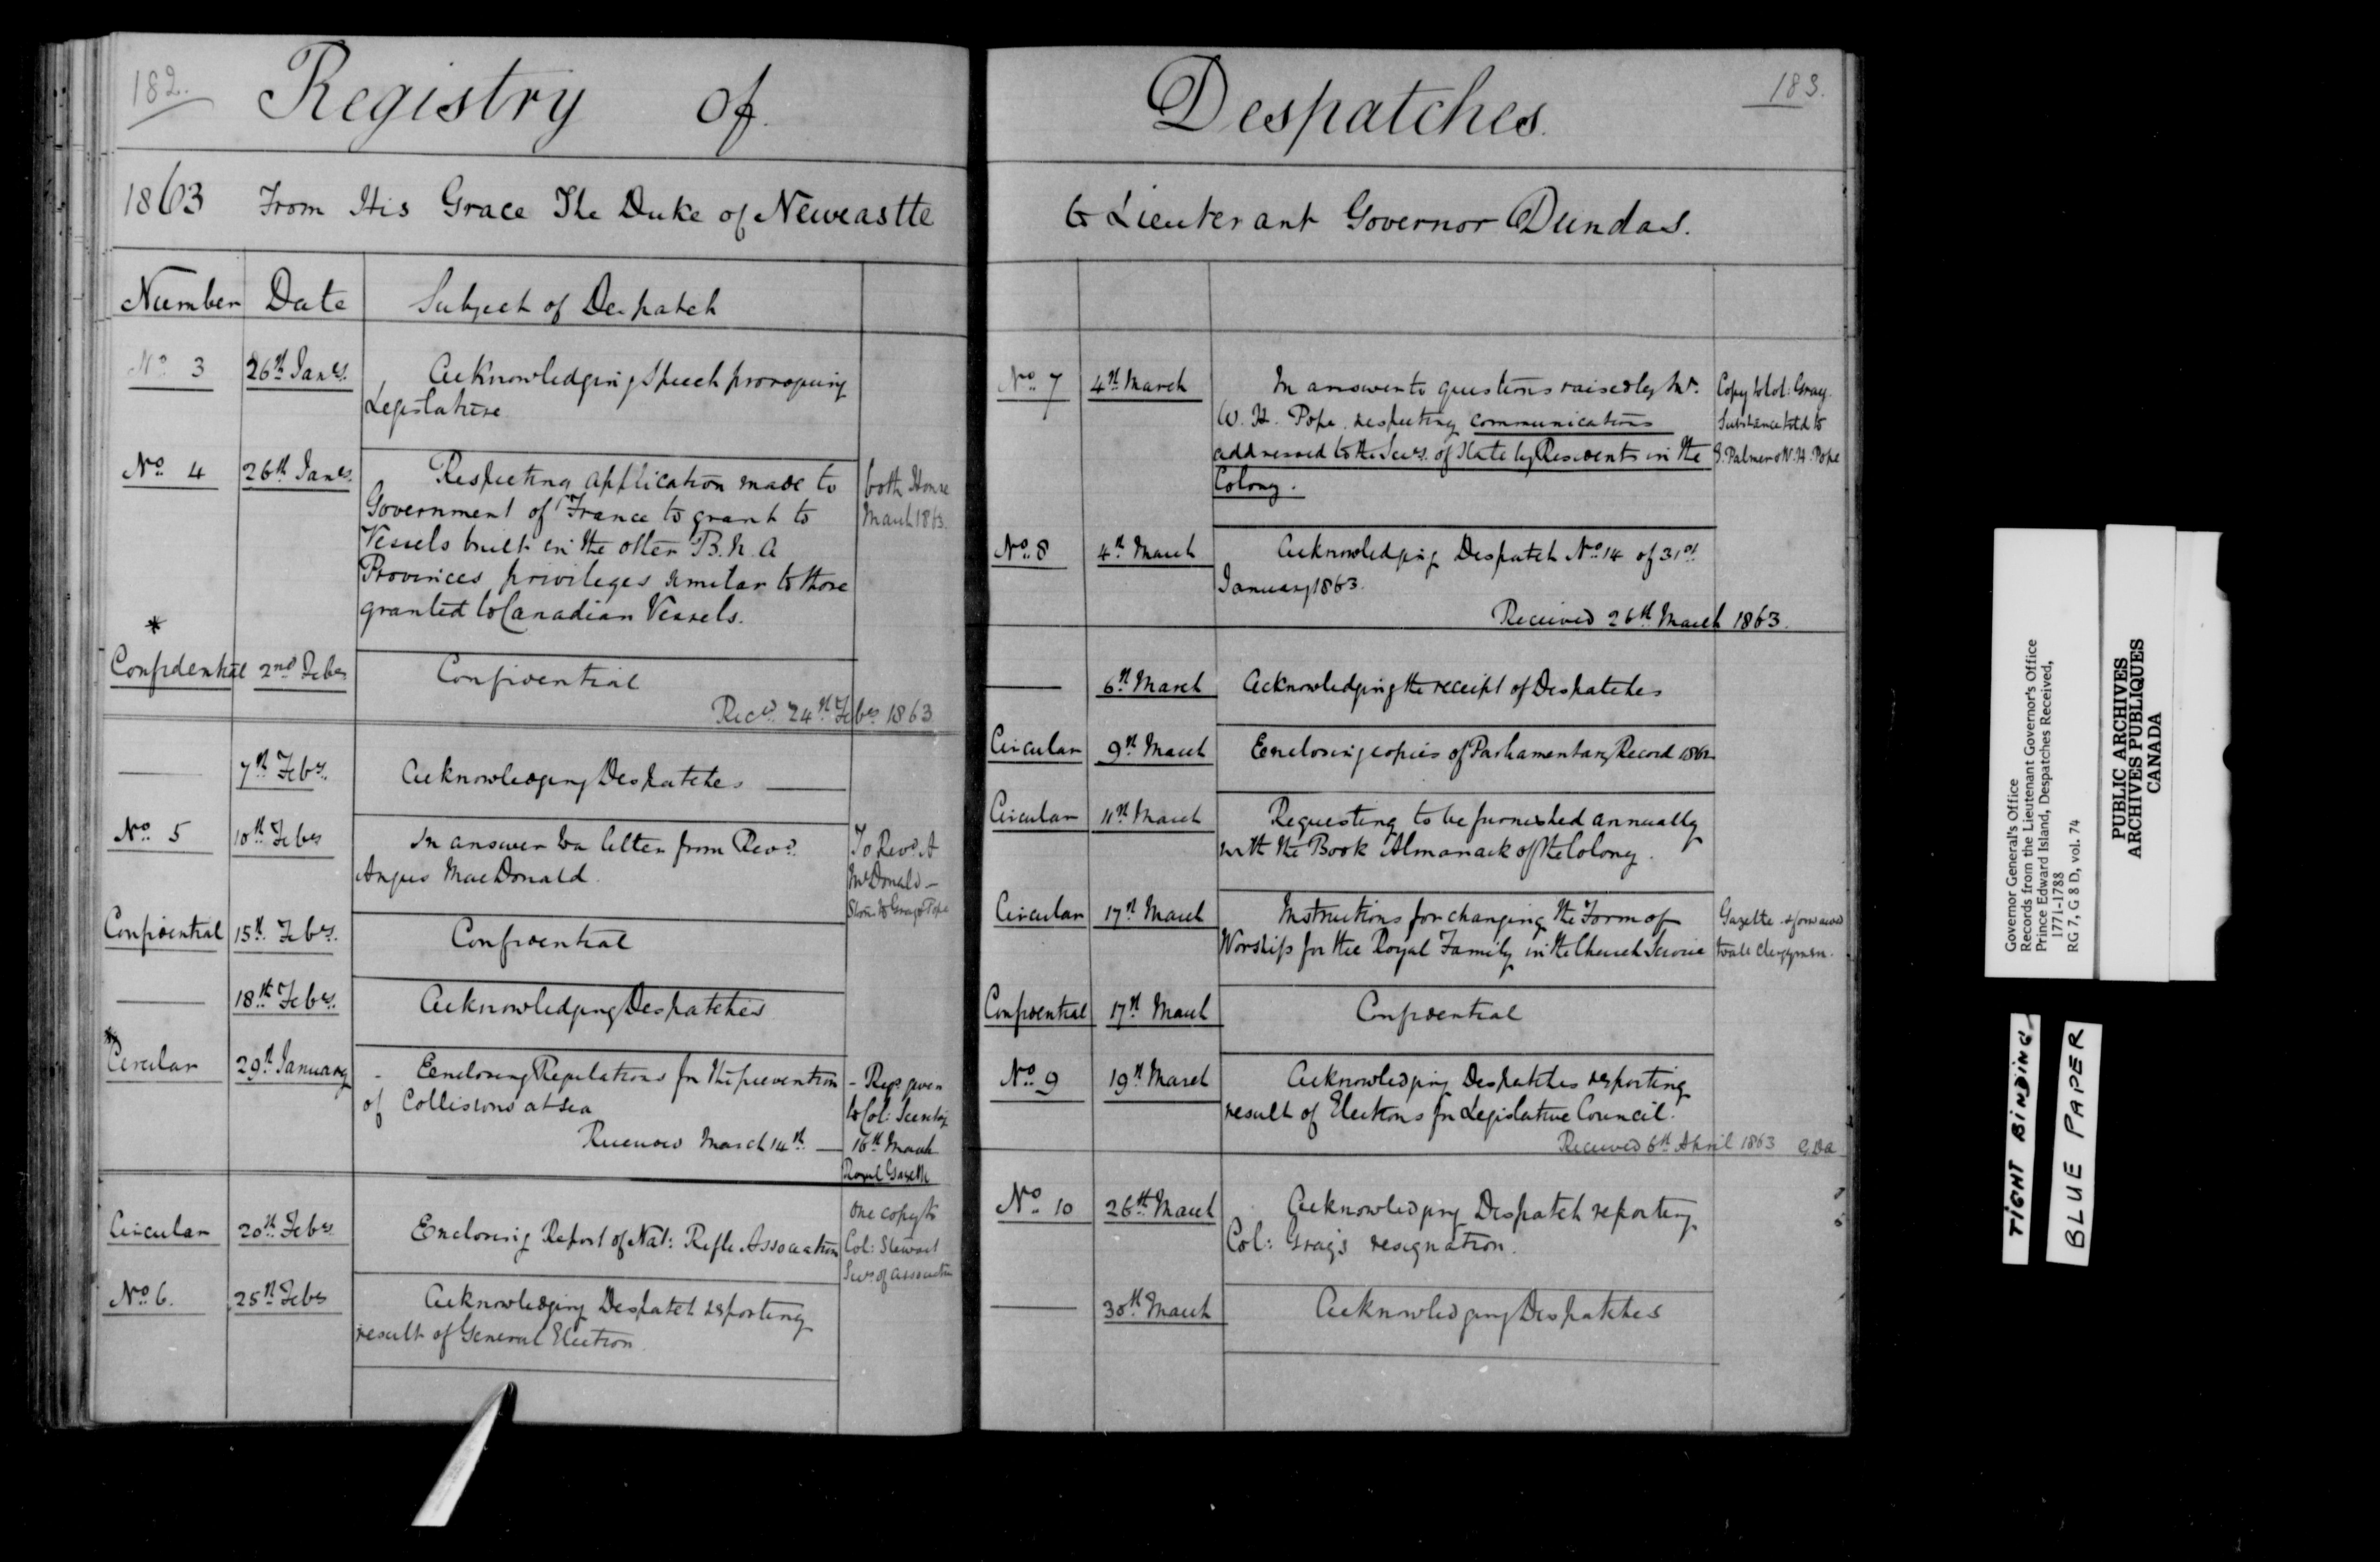 182.
Registry of
1863 From His Grace The Duke of Newcastle
Number Date Subject of Despatch
No. 3 26th Jany. Acknowledging Speech proroguing
Legislature
No. 4 26th Jany. Respecting application made to
Government of France to grant to
Vessels built in the other B. N. A
Provinces privileges similar to those
granted to Canadian Vessels.
both House
March 1863.
*
Confidential 2nd Feby Confidential
Recd. 24th Feby 1863
7th Feby. Acknowledging Despatches
No. 5 10th Feby In answer to a letter from Revd.
Angus MacDonald.
To Revd. A
McDonald —
Shown to Gray & Pope
Confidential 15th Feby. Confidential
18th Feby. Acknowledging Despatches
*
Circular 29th January - Enclosing Regulations for the prevention
of Collisions at sea
Received March 14th —
- Regs given
to Col:
16th March
Royal Gazette
Circular 20th Feby Enclosing Report of Nat: Rifle Association
One copy to
Col: Stewart
Secy of Association
No. 6. 25th Feby Acknowledging Despatch reporting
result of General Election.
183.
Despatches.
to Lieutenant Governor Dundas.
No. 7 4th March In answer to questions raised by Mr.
W. H. Pope respecting communications
addressed to the Secy. of State by Residents in the
Colony.
Copy to Col: Gray.
Substance told to
J. Palmer & W. H. Pope
No. 8 4th March Acknowledging Despatch No. 14 of 31st
January 1863.
Received 26th March 1863.
6th March Acknowledging the receipt of Despatches
Circular 9th March Enclosing copies of Parliamentary Record 1862
Circular 11th March Requesting to be furnished annually
with the Book Almanack of the Colony.
Circular 17th March Instructions for changing the Form of
Worship for the Royal Family in the Church Service
Gazette & forwarded
to all Clergymen.
Confidential 17th March Confidential
No. 9 19th March Acknowledging Despatches reporting
result of Elections for Legislative Council.
Received 6th April 1863
No. 10 26th March Acknowledging Despatch reporting
Col: Gray's resignation.
30th March Acknowledging Despatches
Governor General's Office
Records from the Lieutenant Governor's Office
Prince Edward Island, Despatches Received,
1771-1788
RG 7, G 8 D, vol. 74
PUBLIC ARCHIVES
ARCHIVES PUBLIQUES
CANADA
TIGHT BINDING
BLUE PAPER